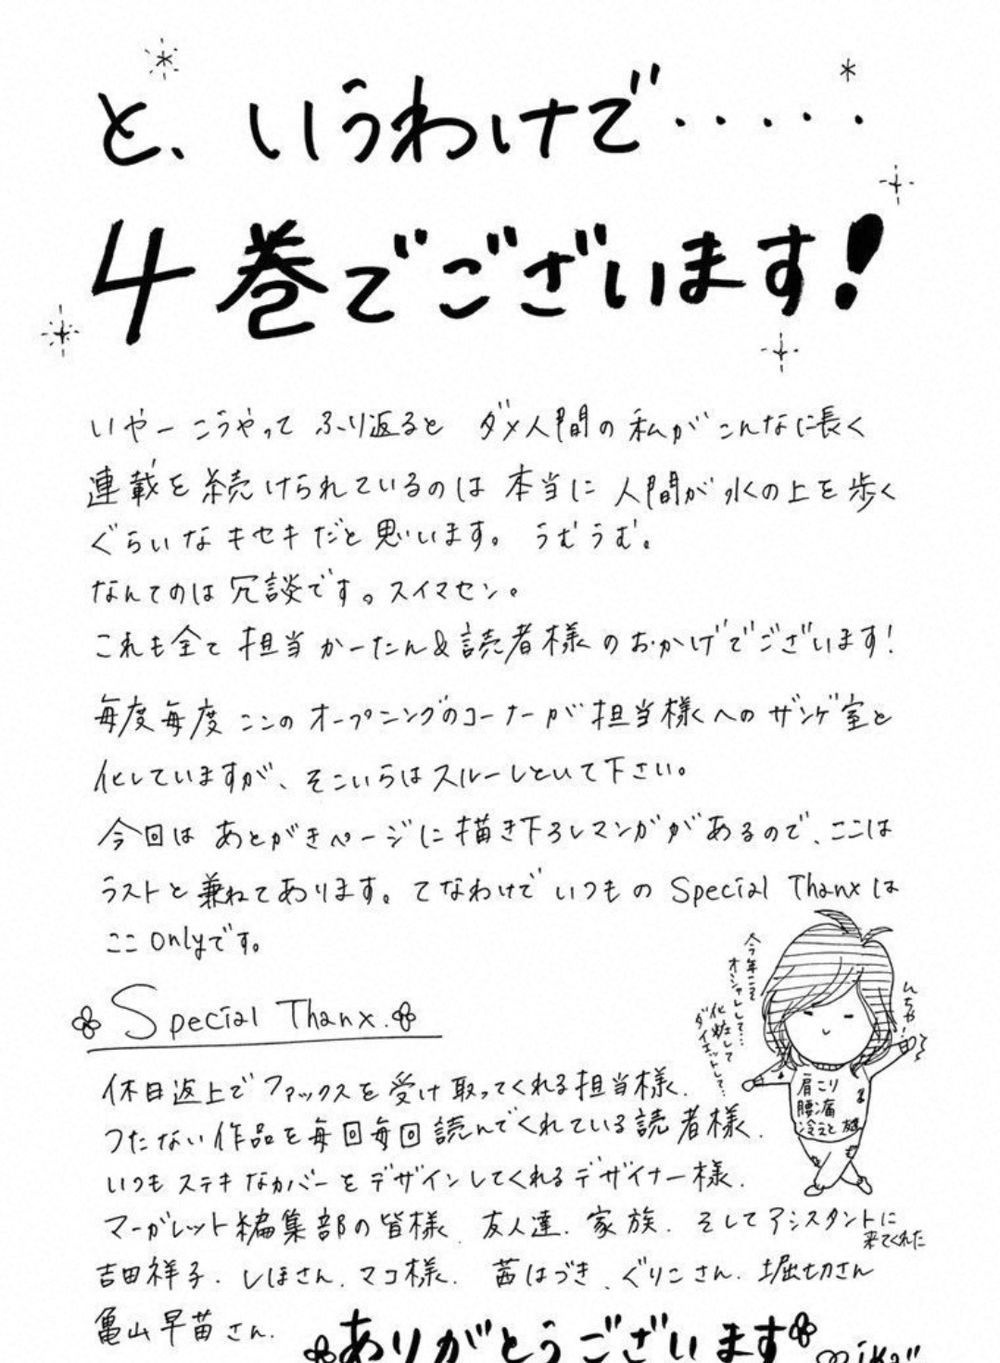 と、いうわけで・・・・・
4巻でございます!
いやー こうやって ふり返ると ダメ人間の私がこんなに長く
連載を続けられているのは本当に人間が水の上を歩く
ぐらいなキセキだと思います。うむうむ。
なんてのは冗談です。スイマセン。
これも全て担当かーたん&読者様のおかげでございます!
毎度毎度ここのオープニングのコーナーが担当様へのザンゲ室と
化していますが、そこいらはスルーしといて下さい。
今回は あとがきページに描き下ろしマンガがあるので、ここは
ラストと兼ねてあります。てなわけでいつものSpecial Thanxは
ここonlyです。
Special Thanx.
休日返上でファックスを受け取ってくれる担当様.
つたない作品を毎回毎回読んでくれている読者様.
いつもステキなカバーをデザインしてくれるデザイナー様.
マーガレット編集部の皆様. 友人達. 家族. そしてアシスタントに
来てくれた
吉田祥子. しほさん. マコ様. 茜はづき. ぐりこさん. 堀切さん
亀山早苗さん.
ありがとうございます
今年こそ
オシャレして…
化粧して
ダイエットして…
んちゃ!
肩こり
腰痛
冷え